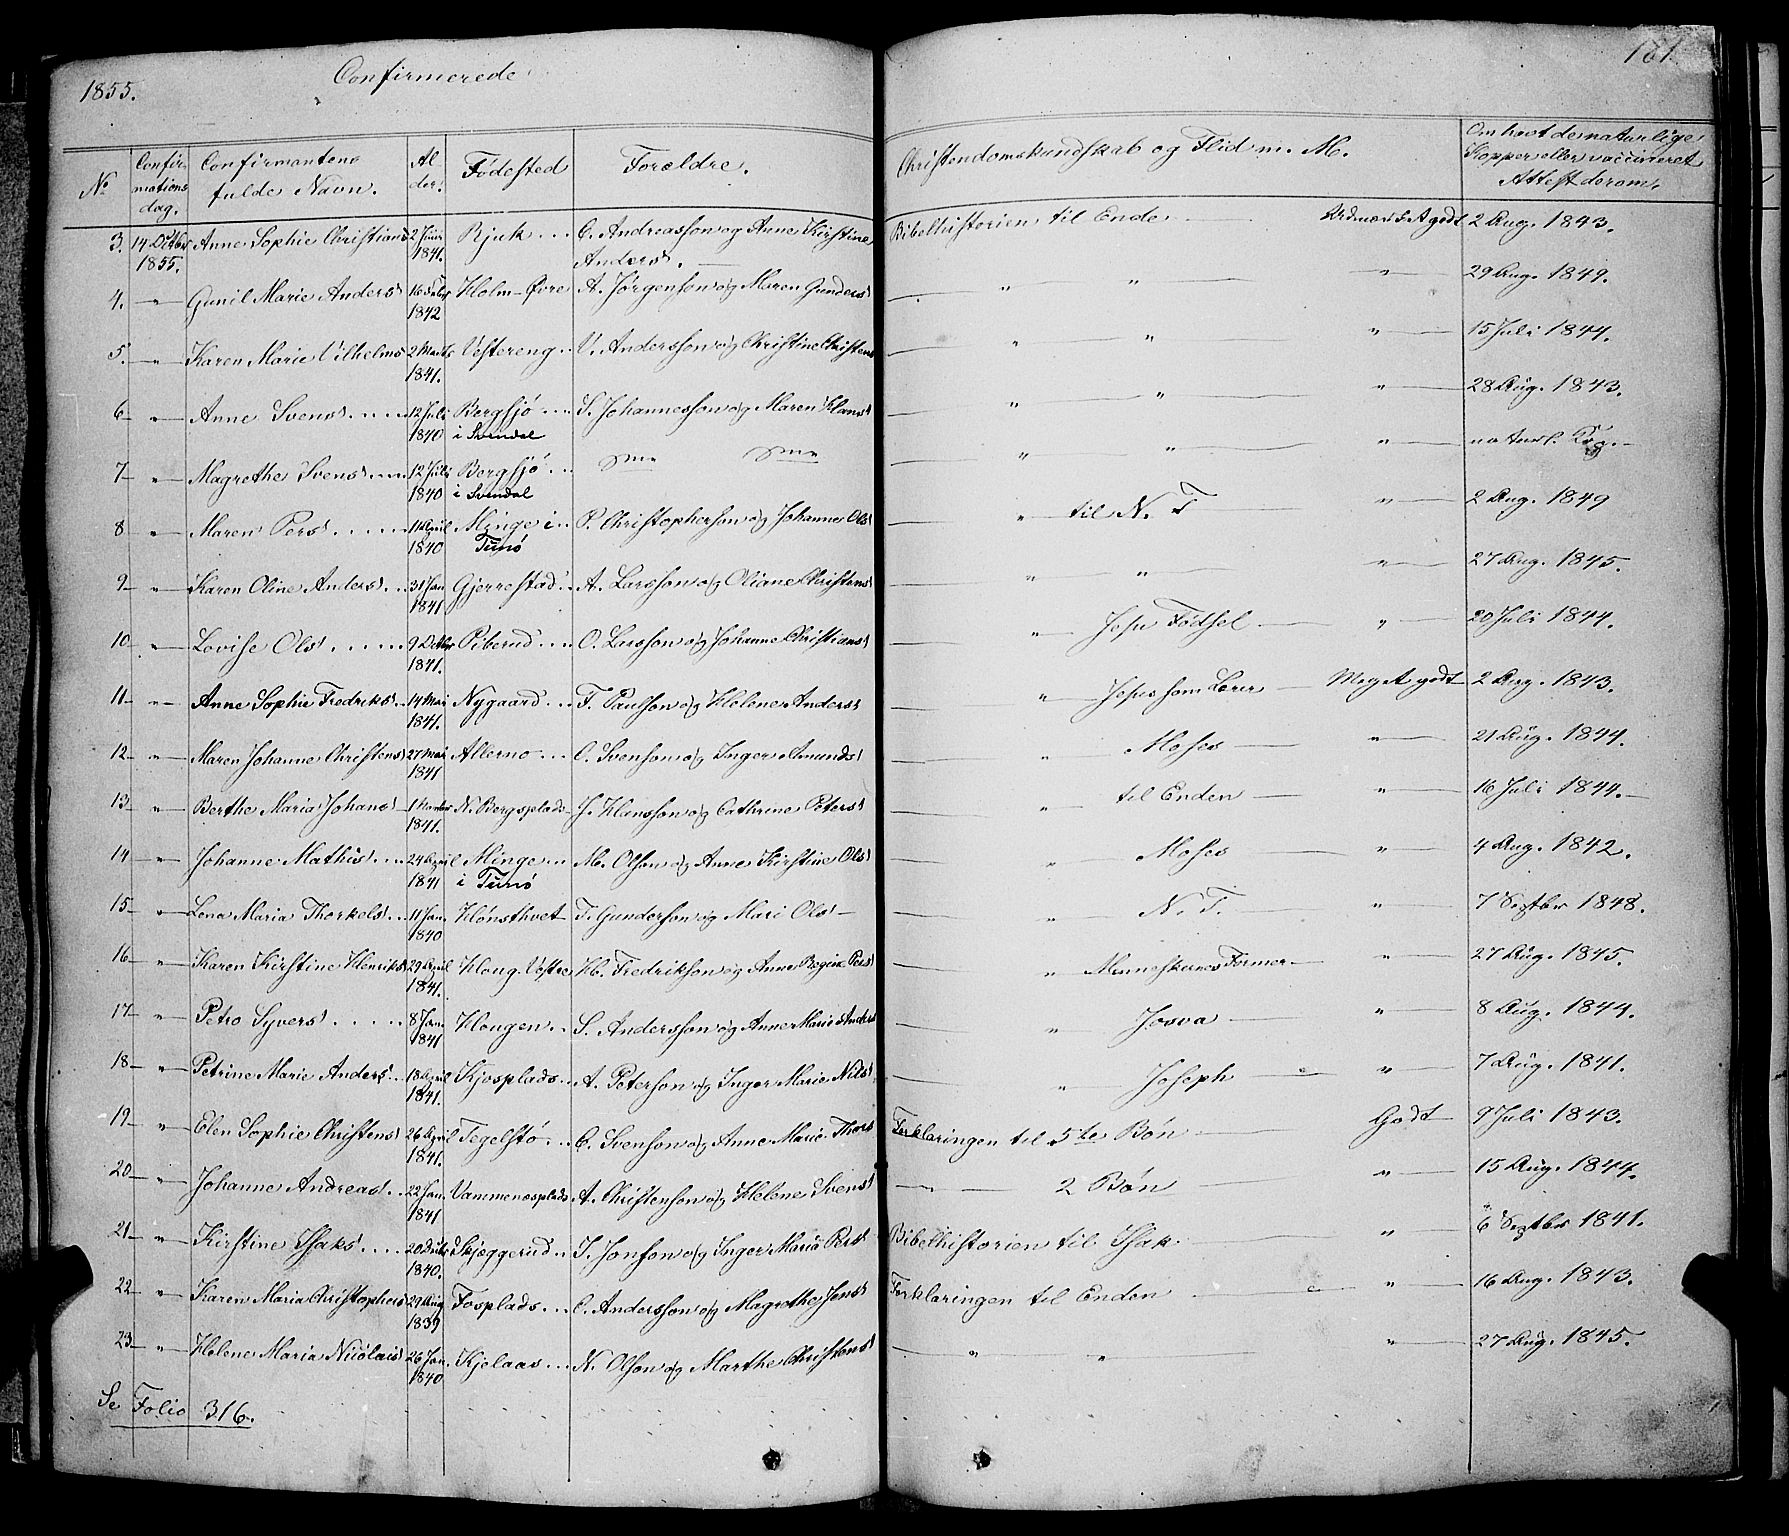 1855. Confirmerede 181.
No Confirmations dag. Confirmantens fulde Navn. Alder. Fødested Forældre. Christendomskundskab og Flid m. M. Om havt de naturlige Kopper eller vaccineret Attest derom.
3. 14 Octbr 1855. Anne Sophie Christians 2 1841. Bjuk... C. Andreasson og Anne Kirstine Anders. Bibelhistorien til Ende godt 2 Aug. 1843.
4. " Gunil Marie Anders 16 Febr 1842 Holm-Øvre A. Jørgenson og Maren Gunders " " " 29 Aug. 1849.
5. " Karen Marie Vilhelms 2 Marts 1841. Vestereng.. V. Andersson og Christine Christens " " " 15 Juli 1844.
6 " Anne Svens.... 12 Juli 1840 Bergsjø... i Svendal S. Johannesson og Maren Hans " " " 28 Aug. 1843.
7 " Magrethe Svens.... 12 Juli 1840 Bergsjø... i Svendal " " " naturl. Kop.
8 " Maren Pers..... 14 April 1840 Minge i.. Tunø P. Christopherson og Johanne Ols " til N. T. " 2 Aug. 1849
9 " Karen Oline Anders.. 31 Jan 1841 Gjerrestad.. A. Larsson og Oliane Christens " " " 27 Aug. 1845.
10 " Lovise Ols...... 9 Octbr 1841. Piberud... O. Larsson og Johanne Christians " Jesu Fødsel " 20 Juli 1844.
11 " Anne Sophie Fredriks. 14 Mai 1841. Nygaard... F. Paulson og Helene Anders " Jesus som Lærer Meget godt 2 Aug. 1843.
12 " Maren Johanne Christens 27 Mai 1841 Allerno... C. Svenson og Inger Amunds " Moses " 21 Aug. 1844.
13 " Berthe Maria Johans 1 1841. N. Bergsplads J. Hansson og Cathrine Peters " til Enden " 16 Juli 1844.
14 " Johanne Mathis... 24 April 1841 Minge... i Tunø M. Olson og Anne Kirstine Ols " Moses " 4 Aug. 1842.
15 " Lena Maria Thorkels. 11 Jan. 1840 Hønsthvet T. Gunderson og Mari Ols " N. T. " 7 Septbr 1848.
16 " Karen Kirstine Henriks 29 April 1841. Houg. Vestre H. Fredrikson og Anne Regine Pers " Menneskenes Former " 27 Aug. 1845.
17 " Petro Syvers..... 8 Jan 1841 Hougen.. S. Andersson og Anne Marie Anders " Josva " 8 Aug. 1844.
18 " Petrine Marie Anders. 18 April 1841. Kjosplads.. A. Peterson og Inger Marie Nils " Joseph " 7 Aug. 1841.
19 " Elen Sophie Christens 26 April 1841. Tegelstø... C. Svenson og Anne Marie Thors Forklaringen til 5te Bøn Godt 9 Juli 1843.
20 " Johanne Andreas.. 22 Jan. 1841 Vammenæsplads A. Christenson og Helene Svens 2 Bøn " 15 Aug. 1844.
21 " Kirstine Isaks.... 20 1840. Skjæggerud.. I. Jonson og Inger Maria Pers Bibelhistorien til Isak. " 6 Septbr 1841.
22 " Karen Maria Christophers 29 Aug 1839 Fosplads... C. Andersson og Magrethe Jens Forklaringen til Enden " 16 Aug. 1843.
23 " Helene Maria Nicolais 26 Jan. 1840 Kjølaas... N. Olson og Marthe Christens " " " 27 Aug. 1845.
Se Folio 316.